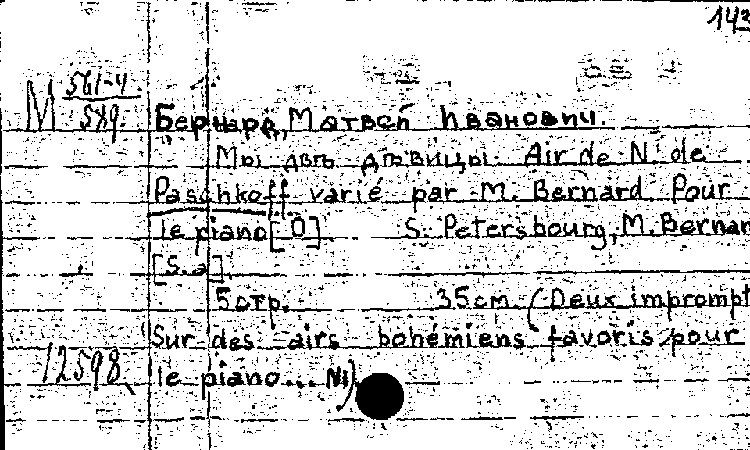 143
М 561-4
589.
Бернард, Матвей Иванович.
Мы двѣ дѣвицы. Air de N. de
Paschkoff varié par M. Bernard Pour
le piano [ O ] S. Petersbourg, M. Bernar
[S. a]
5 стр. 35 см. (Deux imprompt
Sur des airs bohémiens favoris pour
12598 le piano... №1)